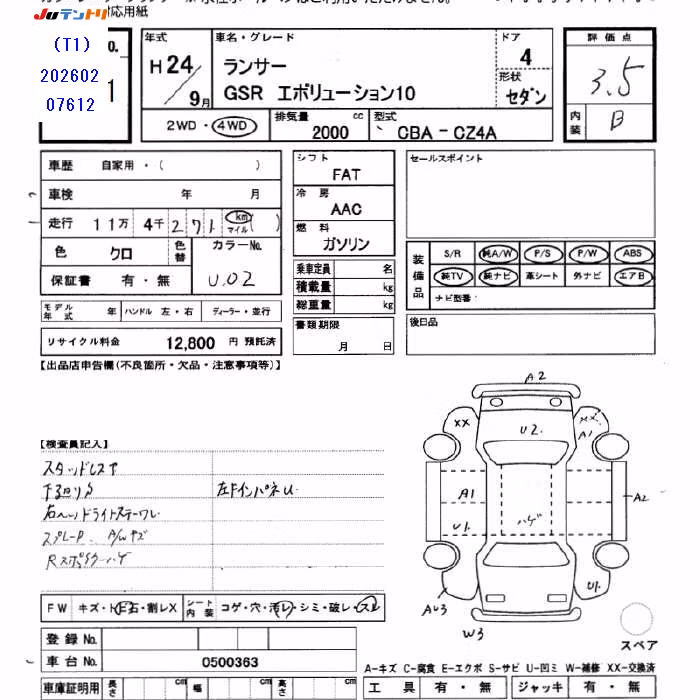 応用紙
Juテントリ
(T1)
202602
07612
o.
1
年式
H24/9月
車名・グレード
ランサー
GSR エボリューション10
ドア
4
形状
セダン
評価点
3.5
内装
B
2WD・4WD
排気量
2000 cc
型式
CBA-CZ4A
車歴 自家用・( )
車検 年 月
走行 11万 4千 271 km マイル ( )
色 クロ 色替 カラーNo.
保証書 有・無 U.02
モデル年式 年 ハンドル 左・右 ディーラー・並行
リサイクル料金 12,800 円 預託済
シフト
FAT
冷房
AAC
燃料
ガソリン
乗車定員 名
積載量 kg
総重量 kg
書類期限
月 日
セールスポイント
装備品
S/R 純A/W P/S P/W ABS
純TV 純ナビ 革シート 外ナビ エアB
ナビ型番:
後日品
【出品店申告欄(不良箇所・欠品・注意事項等)】
【検査員記入】
スタッドレス
下回りサ
左Fインパネ U
右ヘッドライトステーワレ
スプレーP. A/Wキズ
Rスポイラーハゲ
A2
XX
U2
A1
A1
U1
ハゲ
A2
U1
AU3
W3
スペア
FW キズ・ト・飛石・割レX シート内装 コゲ・穴・汚レ・シミ・破レ・スレ
登録No.
車台No. 0500363
車庫証明用 長さ cm 幅 cm 高さ cm
A-キズ C-腐食 E-エクボ S-サビ U-凹ミ W-補修 XX-交換済
工具 有・無 ジャッキ 有・無